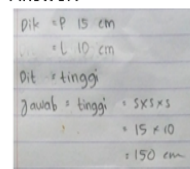 Dik = P 15 cm
... = L 10 cm
Dit = tinggi
Jawab = tinggi = s x s x s
= 15 x 10
= 150 cm